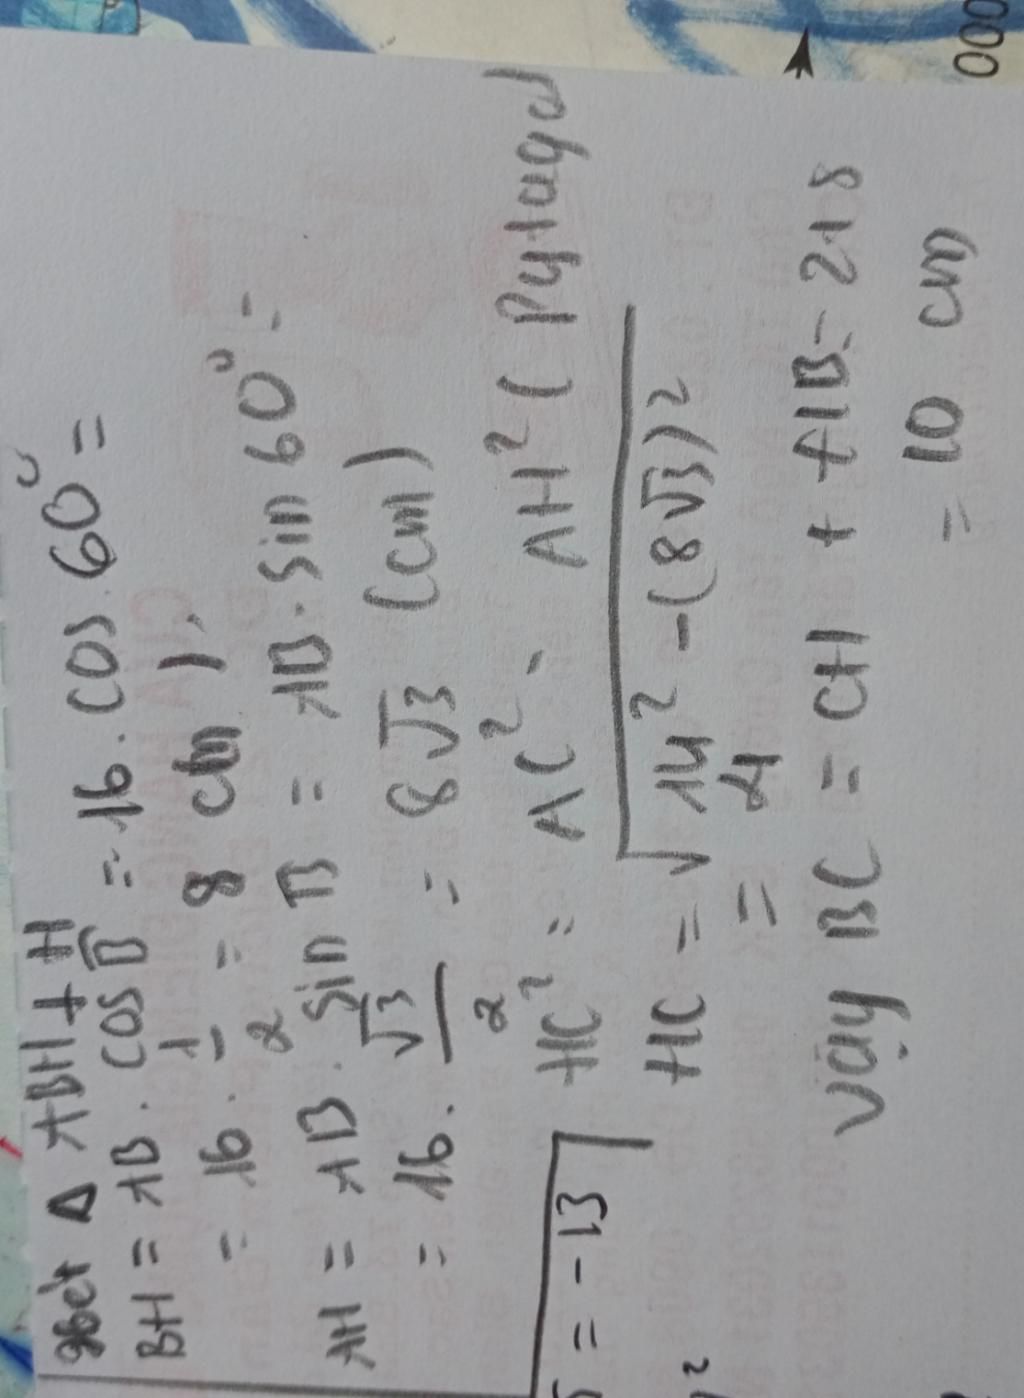 Xét Δ ABH ⊥ H
BH = AB . cos B = 16 . cos 60° =
= 16 . 1/2 = 8 cm ) .
AH = AB . sin B = AB . sin 60° =
= 16 . √3/2 = 8√3 (cm)
HC² = AC² - AH² ( Pytago)
HC = √14² - (8√3)²
= 2
Vậy BC = CH + HB = 2 + 8
= 10 cm
= -13
000